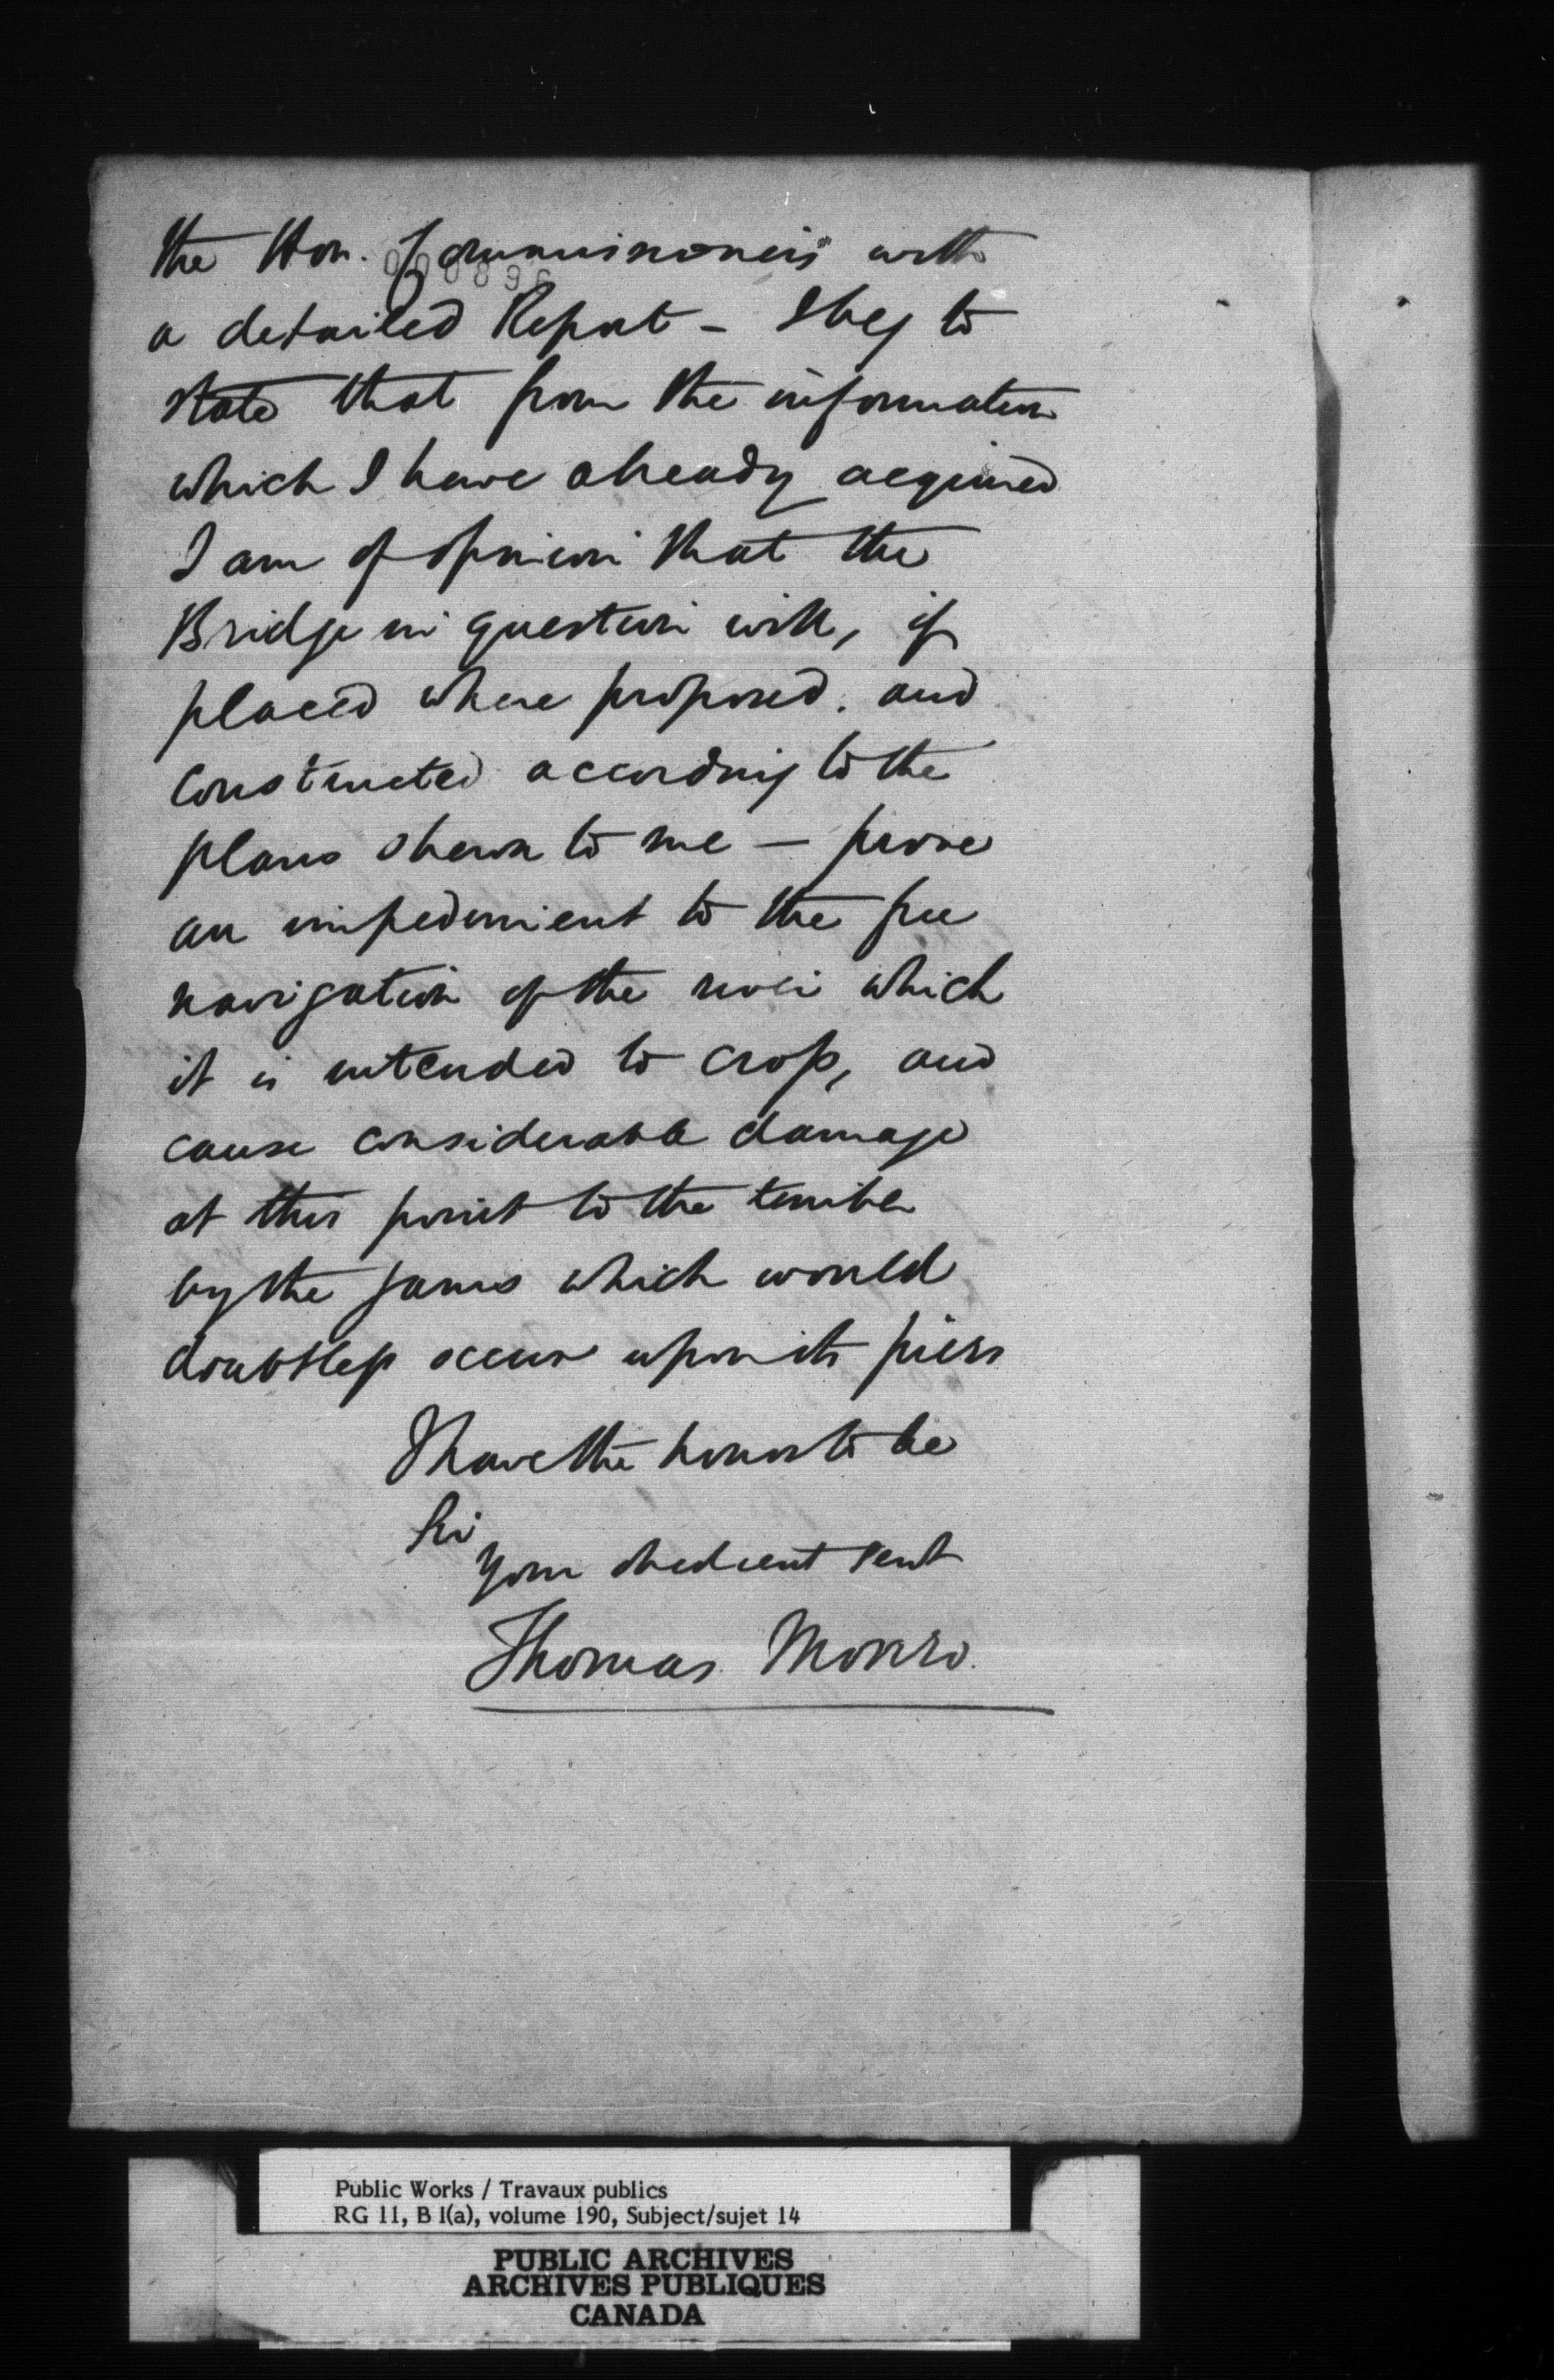 the Hon. Commissioners with
a detailed Report – I beg to
state that from the information
which I have already acquired
I am of opinion that the
Bridge in question will, if
placed where proposed, and
constructed according to the
plans shewn to me – prove
an impediment to the free
navigation of the river which
it is intended to cross, and
cause considerable damage
at this point to the timber
by the jams which would
doubtless occur upon its piers
I have the honor to be
Sir
Your obedient servt
Thomas Monro.
Public Works / Travaux publics
RG 11, B 1(a), volume 190, Subject/sujet 14
PUBLIC ARCHIVES
ARCHIVES PUBLIQUES
CANADA